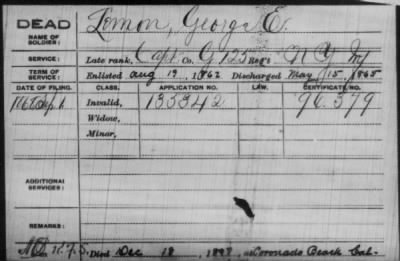 DEAD
NAME OF SOLDIER: Lemon, George E.
SERVICE: Late rank, Capt. Co. G, 125 Reg't N Y Inf
TERM OF SERVICE: Enlisted Aug 19, 1862 Discharged May 15, 1865
DATE OF FILING. CLASS. APPLICATION NO. LAW. CERTIFICATE NO.
Invalid, 133342 96.379
Widow,
Minor,
ADDITIONAL SERVICES:
REMARKS:
Died Dec 18, at Coronado Beach Cal.